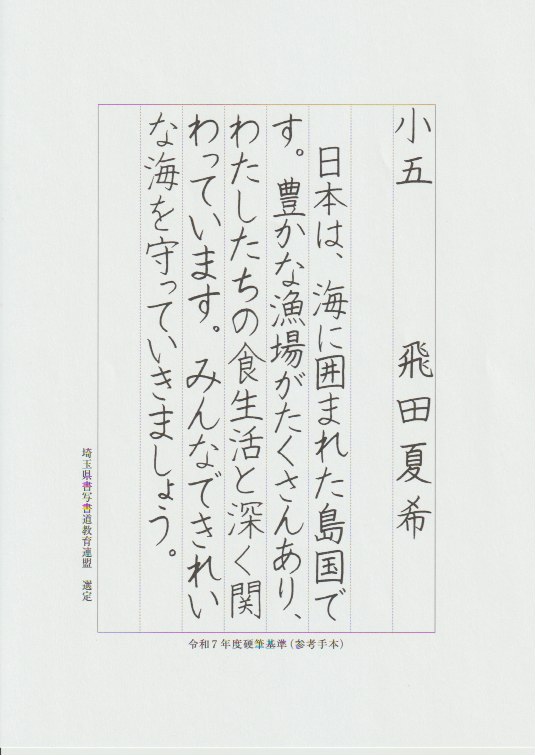 小五　飛田夏希
日本は、海に囲まれた島国で
す。豊かな漁場がたくさんあり、
わたしたちの食生活と深く関
わっています。みんなできれい
な海を守っていきましょう。
埼玉県書写書道教育連盟　選定
令和7年度硬筆基準（参考手本）